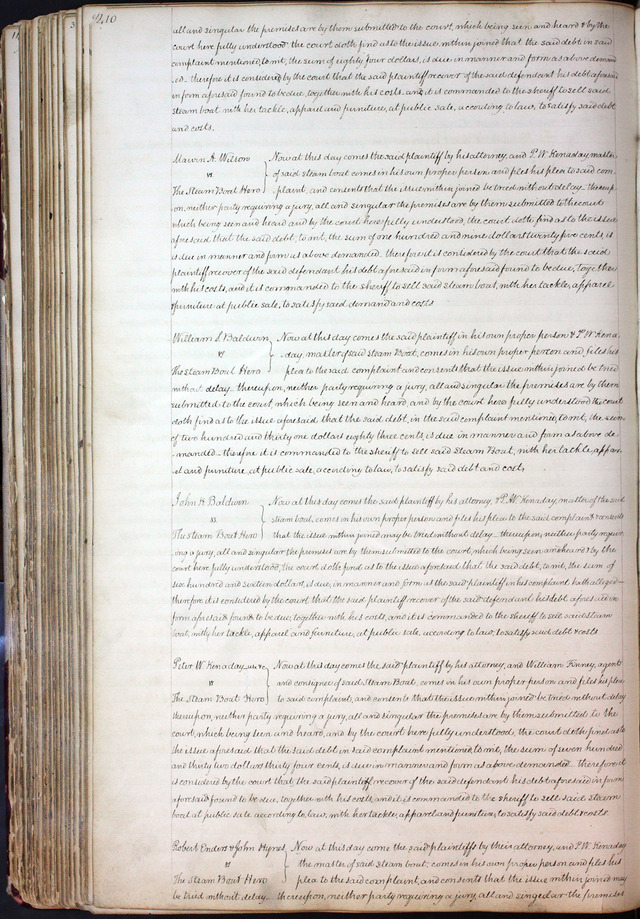 210
all and singular the premises are by them submitted to the court, which being seen and heard & by the
court here fully understood the court doth find as to the issue within joined that the said debt in said
complaint mentioned, towit, the sum of eighty four dollars, is due in manner and form as above demand
ed. therefore it is considered by the court that the said plaintiff recover of the said defendant his debt aforesaid
in form aforesaid found to be due, together with his costs. and it is commanded to the sheriff to sell said
steam boat with her tackle, apparel and furniture, at public sale, according to law, to satisfy said debt
and costs.
Marvin A. Wilson } Now at this day comes the said plaintiff by his attorney, and P. W. Kenaday, master
vs of said steam boat comes in his own proper person and files his plea to said com-
The Steam Boat Hero plaint, and consents that the issue within joined be tried without delay. thereup-
on, neither party requiring a jury, all and singular the premises are by them submitted to the court
which being seen and heard and by the court here fully understood, the court doth find as to the issue
aforesaid that the said debt, towit, the sum of one hundred and nine dollars twenty five cents, is
is due in manner and form as above demanded. therefore it is considered by the court that the said
plaintiff recover of the said defendant his debt aforesaid in form aforesaid found to be due, together
with his costs, and it is commanded to the sheriff to sell said steam boat, with her tackle, apparel
& furniture at public sale, to satisfy said demand and costs
William S. Baldwin } Now at this day comes the said plaintiff in his own proper person & P. W. Kena-
vs day, master of said Steam Boat, comes in his own proper person and files his
The Steam Boat Hero plea to the said complaint and consents that the issue within joined be tried
without delay. thereupon, neither party requiring a jury, all and singular the premises are by them
submitted to the court, which being seen and heard, and by the court here fully understood the court
doth find as to the issue aforesaid that the said debt, in the said complaint mentioned, towit, the sum
of two hundred and thirty one dollars eighty three cents, is due in manner and form as above de-
manded. therefore it is commanded to the sheriff to sell said Steam Boat, with her tackle, appar-
el and furniture, at public sale, according to law, to satisfy said debt and costs,
John H. Baldwin } Now at this day comes the said plaintiff by his attorney, & P. W. Kenaday, master of the said
vs. steam boat, comes in his own proper person and files his plea to the said complaint & consents
The Steam Boat Hero that the issue within joined may be tried without delay. thereupon, neither party requir-
ing a jury, all and singular the premises are by them submitted to the court, which being seen and heard & by the
court here fully understood, the court doth find as to the issue aforesaid that the said debt, towit, the sum of
two hundred and sixteen dollars, is due, in manner and form as the said plaintiff in his complaint hath alleged
therefore it is considered by the court that the said plaintiff recover of the said defendant his debt aforesaid in
form aforesaid found to be due, together with his costs, and it is commanded to the sheriff to sell said steam
boat, with her tackle, apparel and furniture, at public sale, according to law, to satisfy said debt & costs
Peter W. Kenaday } Now at this day comes the said plaintiff by his attorney, and William Finney, agent
vs and consignee of said Steam Boat, comes in his own proper person and files his plea
The Steam Boat Hero to said complaint, and consents that the issue within joined be tried without delay
thereupon, neither party requiring a jury, all and singular the premises are by them submitted to the
court, which being seen and heard, and by the court here fully understood, the court doth find as to
the issue aforesaid that the said debt in said complaint mentioned, towit, the sum of seven hundred
and thirty two dollars thirty four cents, is due in manner and form as above demanded. therefore it
is considered by the court that the said plaintiff recover of the said defendant his debt aforesaid in form
aforesaid found to be due, together with his costs, and it is commanded to the sheriff to sell said steam
boat at public sale according to law, with her tackle, apparel and furniture, to satisfy said debt & costs.
Robert Enders & John Hynes } Now at this day come the said plaintiffs by their attorney, and P. W. Kenaday
vs the master of said steam boat, comes in his own proper person and files his
The Steam Boat Hero plea to the said complaint, and consents that the issue within joined may
be tried without delay. thereupon, neither party requiring a jury, all and singular the premises